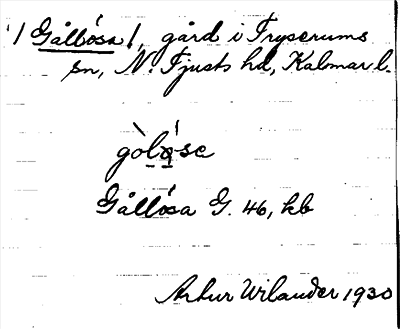 / Gållösa /, gård i Tryserums
sn, N. Tjusts hd, Kalmar l.
Gållösa G. 46, kb
Artur Wilander 1930